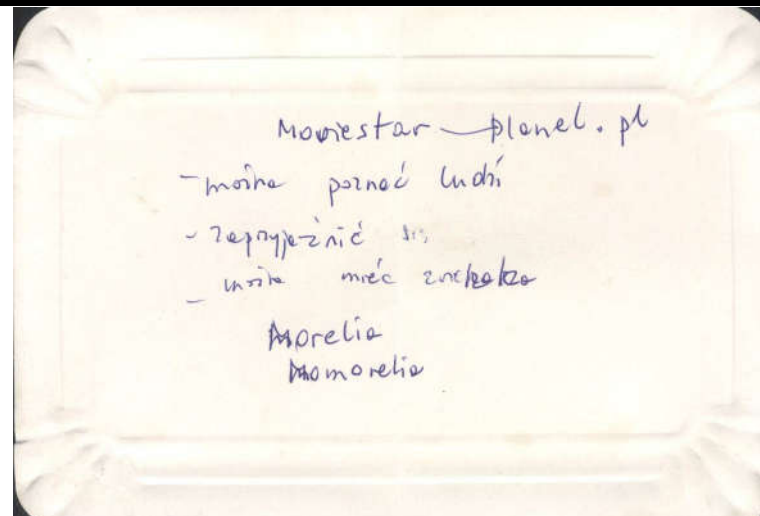 Moviestar — planet.pl
- można poznać ludzi
- zaprzyjaźnić się
- można mieć
Morelia
Momorelia